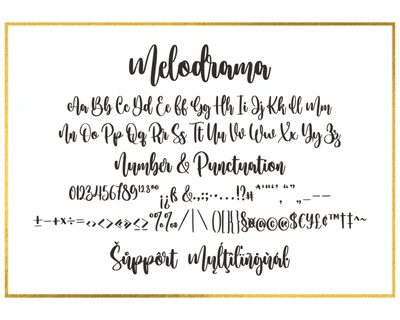 Melodrama
Aa Bb Cc Dd Ee Ff Gg Hh Ii Jj Kk Ll Mm
Nn Oo Pp Qq Rr Ss Tt Uu Vv Ww Xx Yy Zz
Number & Punctuation
0123456789
¡¿ß &.,:;
±-+×÷=
Šůppőrt Mųļţįlïñgùąŀ